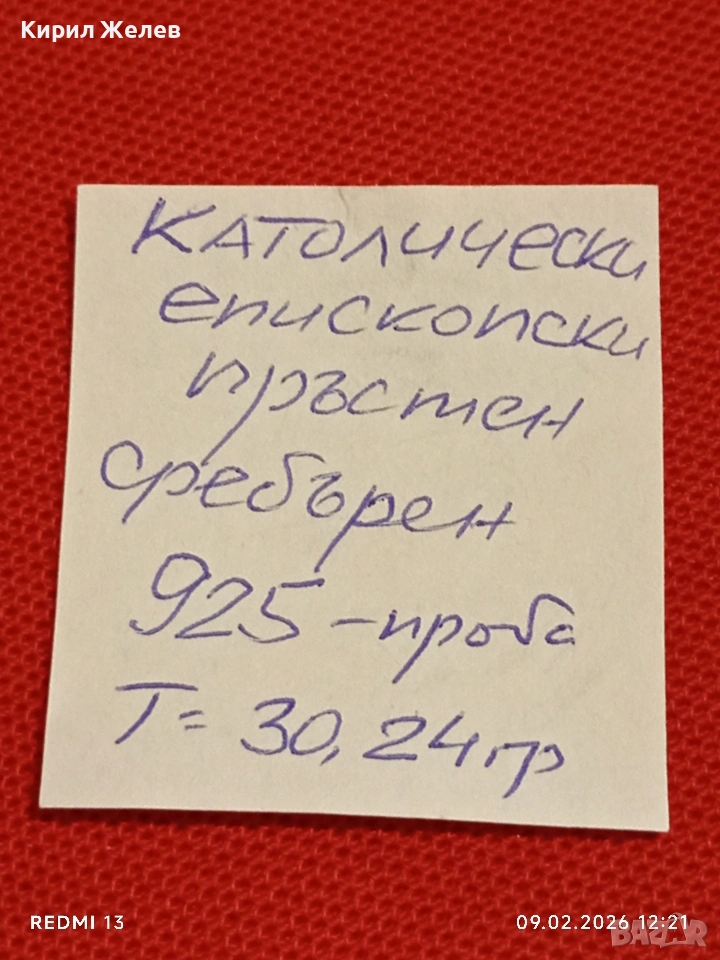 Кирил Желев
КАТОЛИЧЕСКИ
епископски
пръстен
сребърен
925 - проба
Т = 30,24 гр
REDMI 13
09.02.2026 12:21
BAZAR